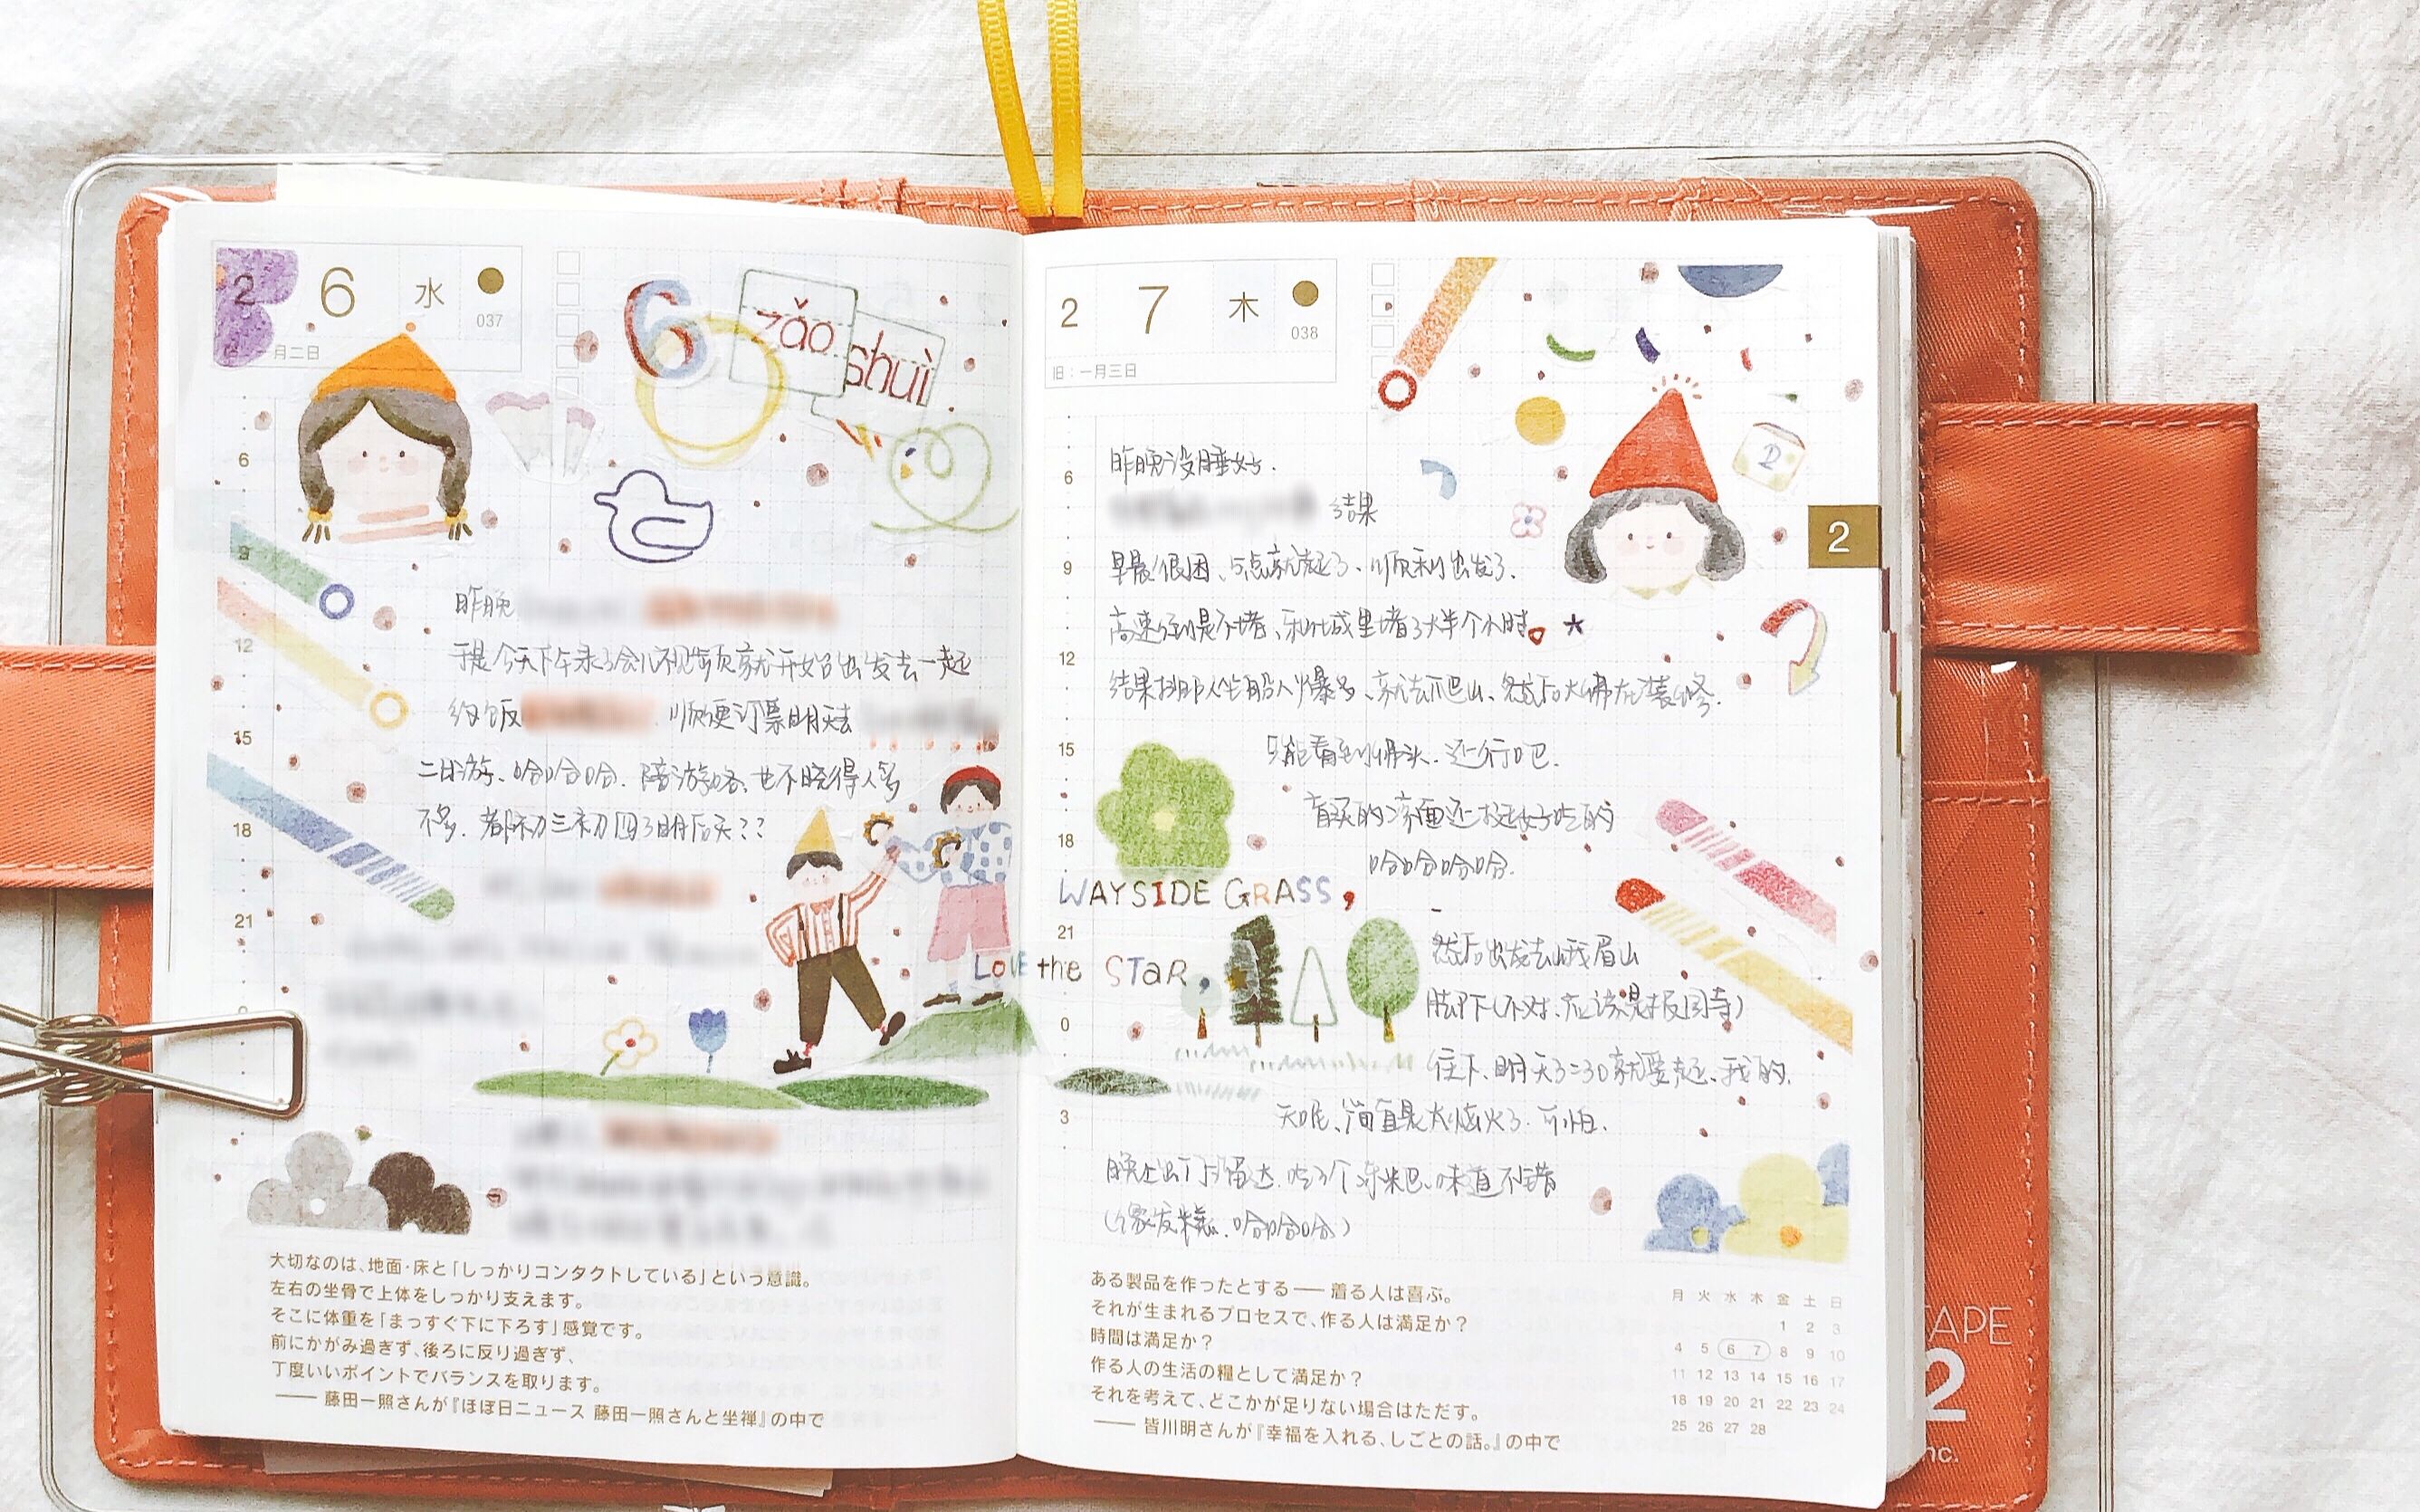 2 6 水
037
月二日
6
zǎo
shuì
6
9
12
15
18
21
0
昨晚
于是今天下午录了会儿视频就开始出发去一起
约饭 顺便订票明天去
二日游、哈哈哈. 陪游咯、也不晓得人多
不多. 都初三初四了明后天??
LOVE the STAR,
大切なのは、地面・床と「しっかりコンタクトしている」という意識。
左右の坐骨で上体をしっかり支えます。
そこに体重を「まっすぐ下に下ろす」感覚です。
前にかがみ過ぎず、後ろに反り過ぎず、
丁度いいポイントでバランスを取ります。
—— 藤田一照さんが『ほぼ日ニュース 藤田一照さんと坐禅』の中で
2 7 木
038
旧：一月三日
2
6
9
12
15
18
21
0
3
昨晚没睡好.
结果
早晨很困、5点就起了、顺利出发了.
高速倒是不堵、乐山城里堵了大半个小时。
结果排队坐船人爆多、就去爬山、然后大佛在装修.
只能看到佛头. 还行吧.
买的凉面还挺好吃的
哈哈哈哈.
WAYSIDE GRASS,
然后出发去峨眉山
脚下(不对、应该是报国寺)
住下、明天3:30就要起、我的.
天呢、简直是太恼火了. 可怕.
晚上出门溜达. 吃了个冻粑、味道不错
哈哈哈)
ある製品を作ったとする —— 着る人は喜ぶ。
それが生まれるプロセスで、作る人は満足か?
時間は満足か?
作る人の生活の糧として満足か?
それを考えて、どこかが足りない場合はただす。
—— 皆川明さんが『幸福を入れる、しごとの話。』の中で
月 火 水 木 金 土 日
1 2 3
4 5 6 7 8 9 10
11 12 13 14 15 16 17
18 19 20 21 22 23 24
25 26 27 28
TAPE
2
nc.